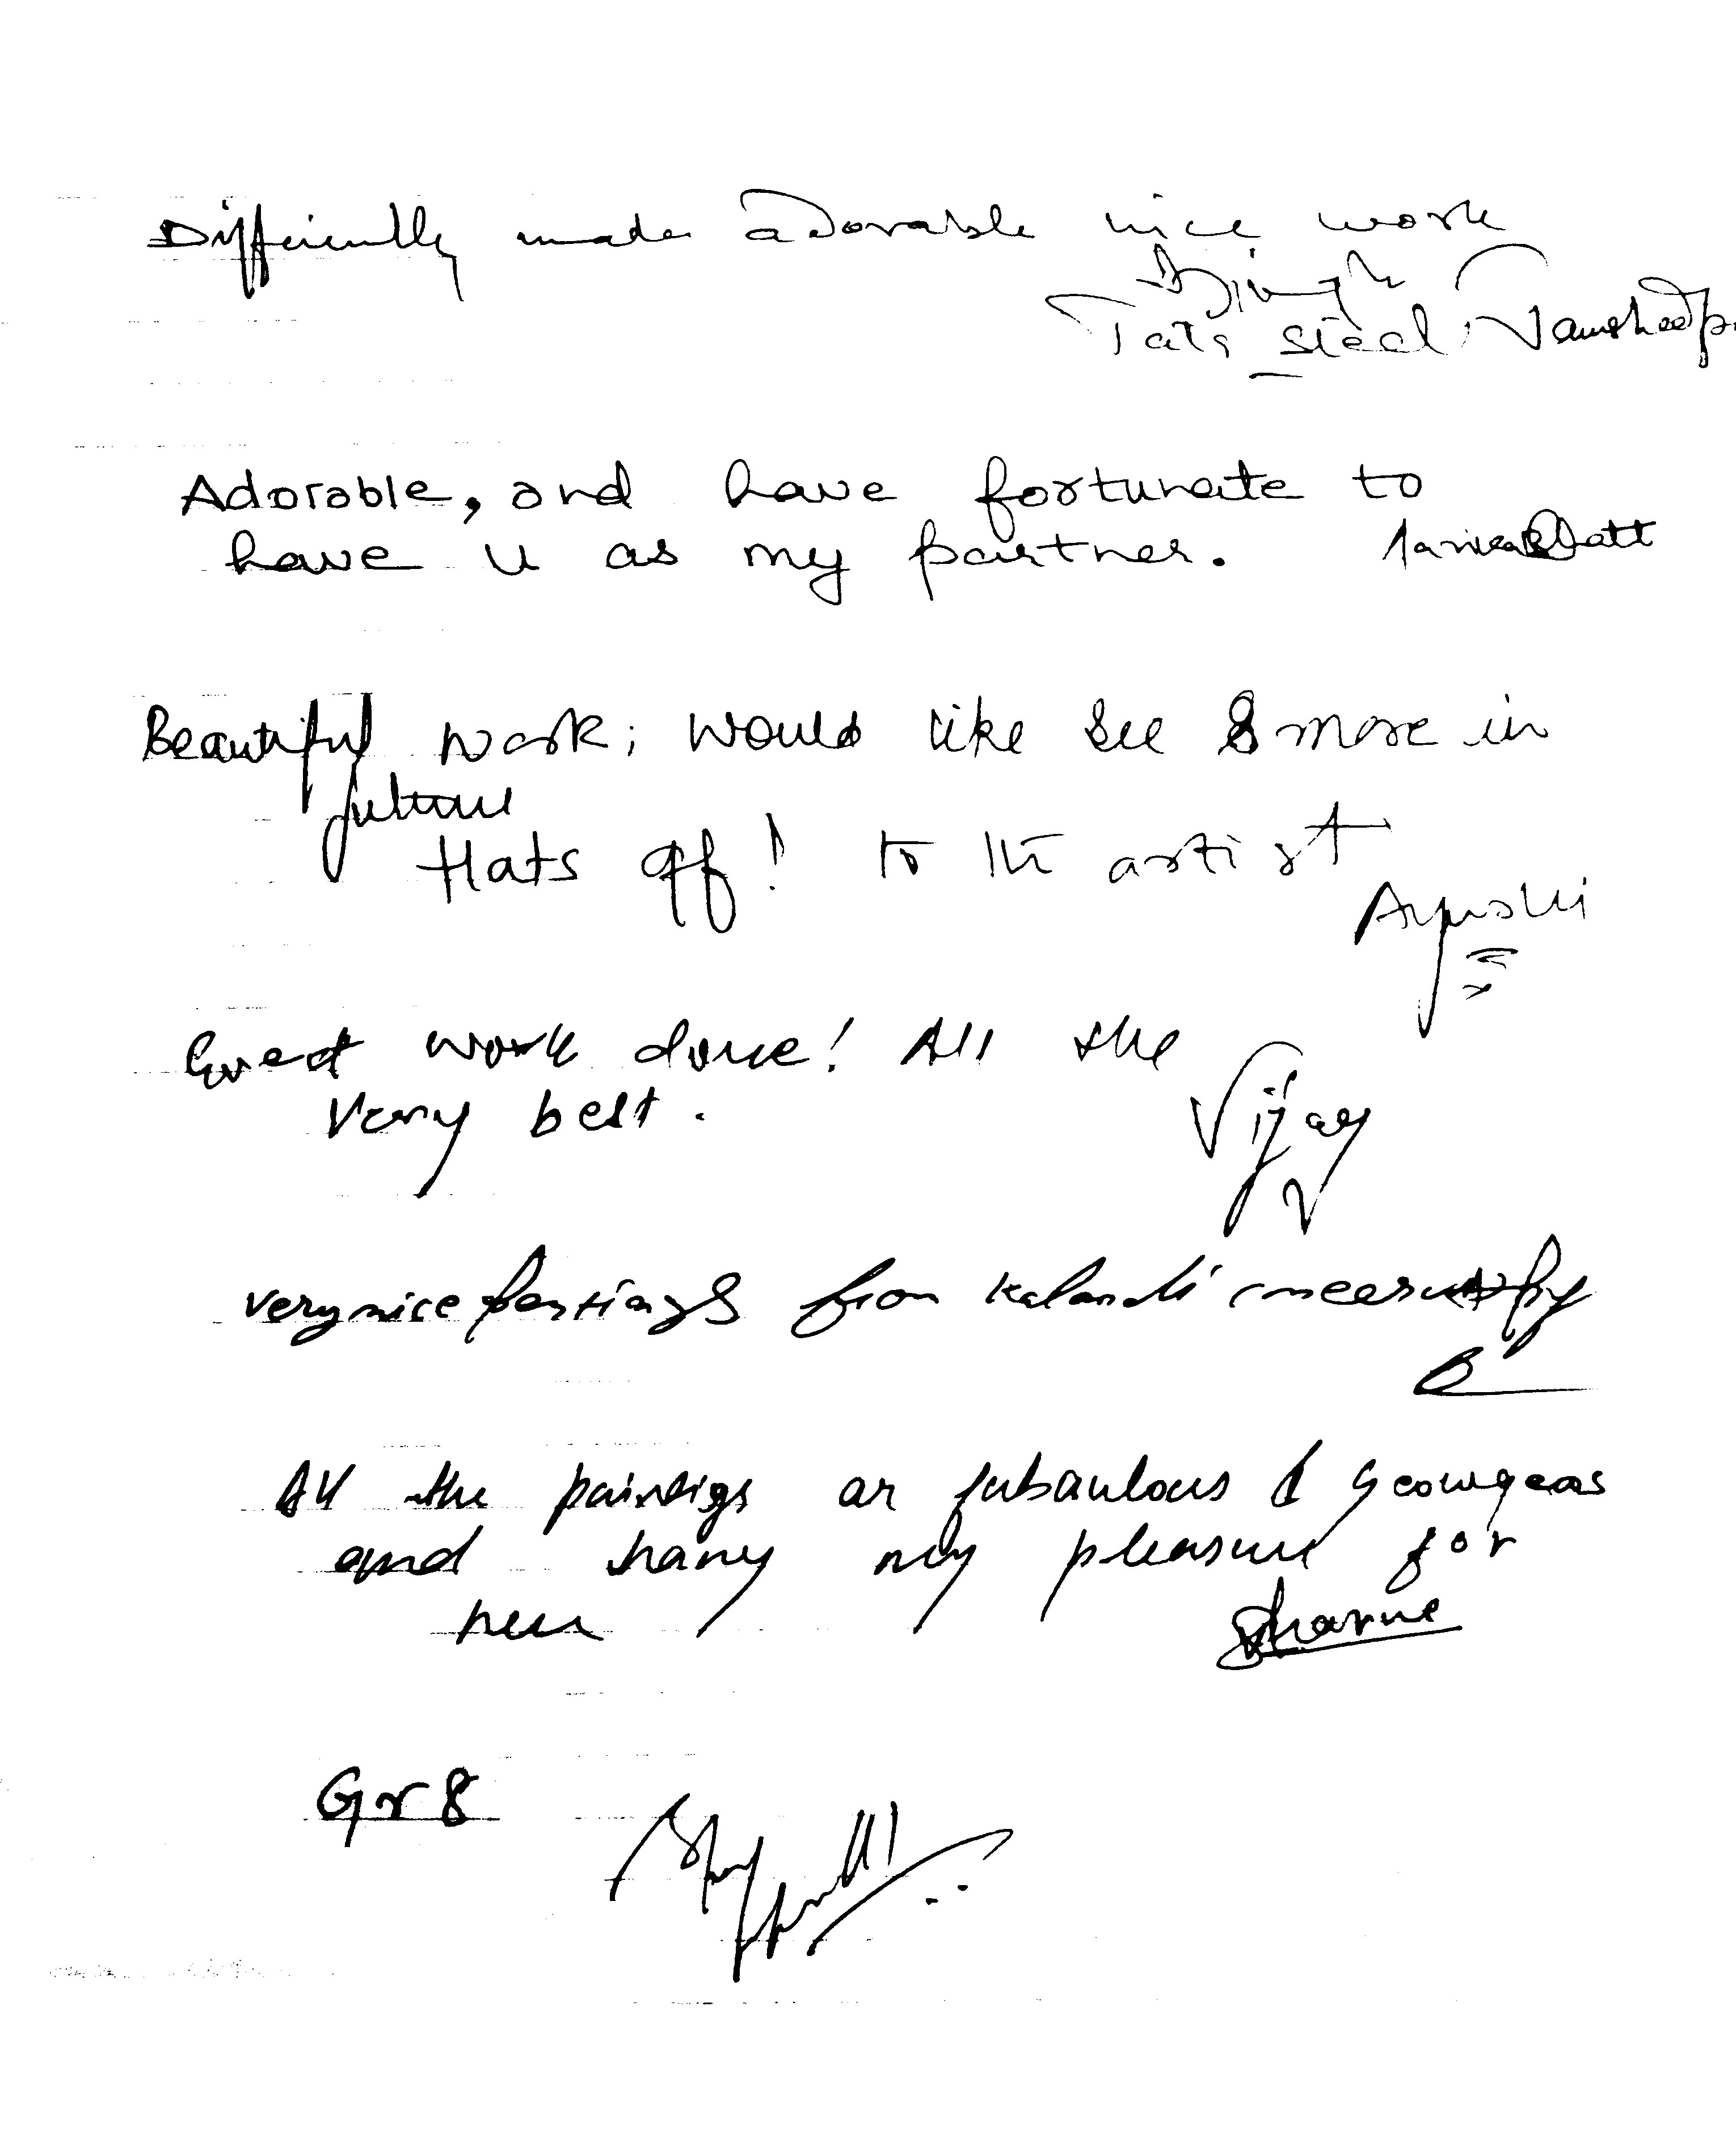 Differently made adorable nice work
Singh
Tata Steel, Jamshedp
Adorable, and have fortunate to
have u as my partner. Bhatt
Beautiful work; would like see more in
future
Hats off! to the artist
Ayushi
Great work done! All the
Very best.
Vijay
very nice from
All the paintigs ar fubaulous & Geourgeas
and my pleasure for
Sharma
Gr8